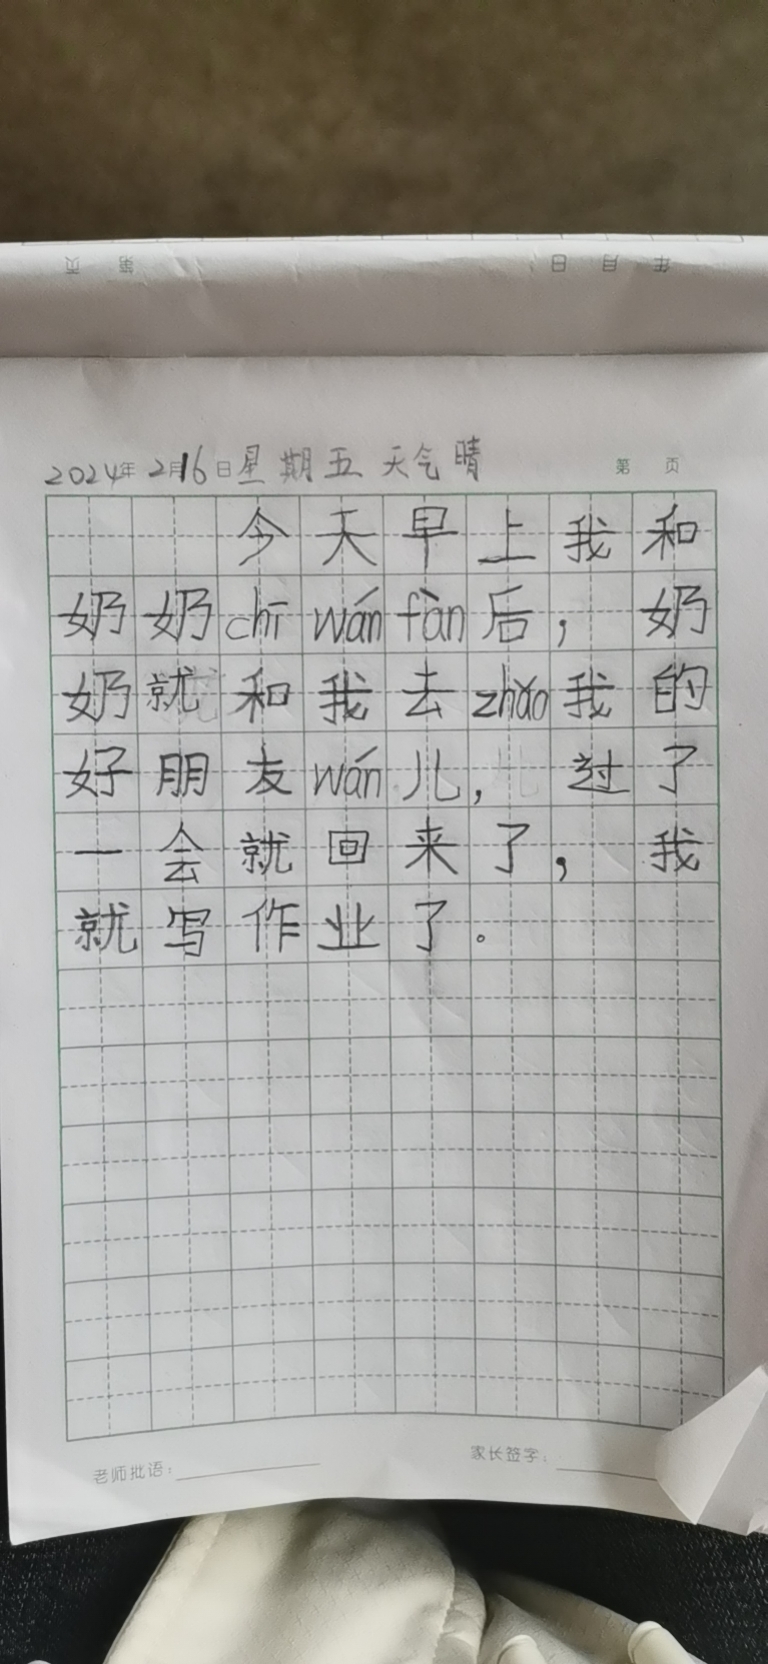 页 第 日 月 年
2024年 2月16日 星期五 天气晴 第 页
今天早上我和
奶奶chī wán fàn后，奶
奶就和我去zhǎo我的
好朋友wán儿，过了
一会就回来了，我
就写作业了。
老师批语： 家长签字：